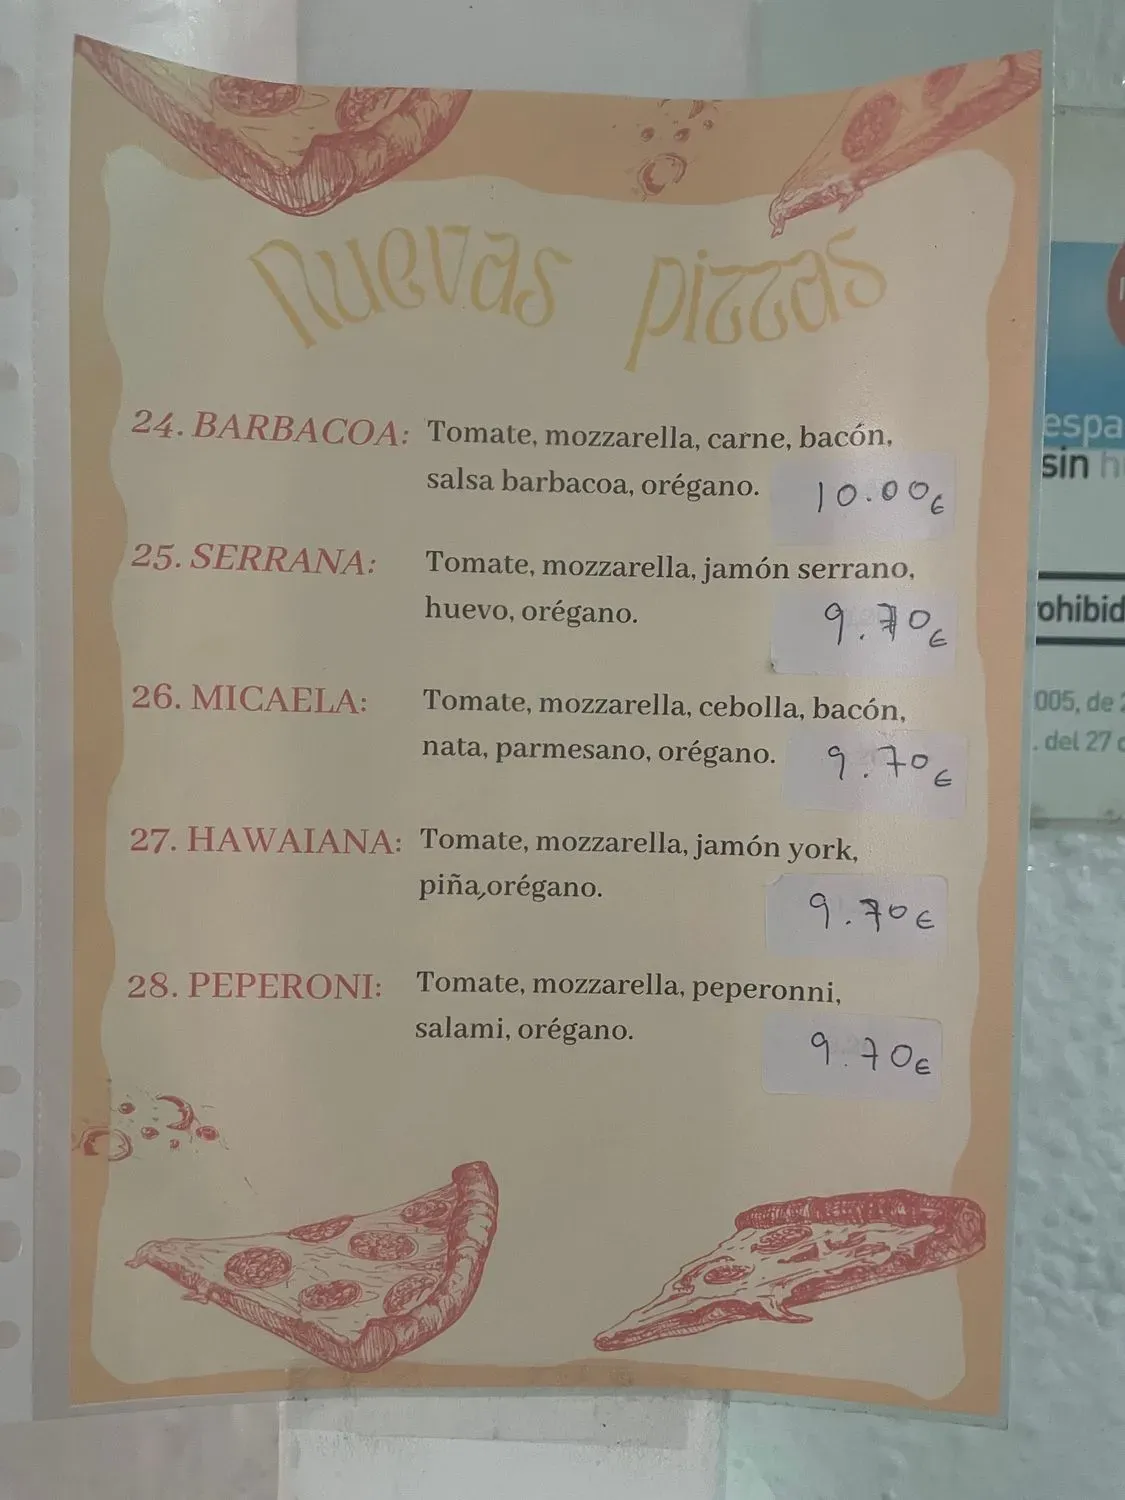 Nuevas pizzas
24. BARBACOA: Tomate, mozzarella, carne, bacón,
salsa barbacoa, orégano. 10.00€
25. SERRANA: Tomate, mozzarella, jamón serrano,
huevo, orégano. 9.70€
26. MICAELA: Tomate, mozzarella, cebolla, bacón,
nata, parmesano, orégano. 9.70€
27. HAWAIANA: Tomate, mozzarella, jamón york,
piña,orégano. 9.70€
28. PEPERONI: Tomate, mozzarella, peperonni,
salami, orégano. 9.70€
espa
sin h
ohibid
005, de 2
. del 27 d